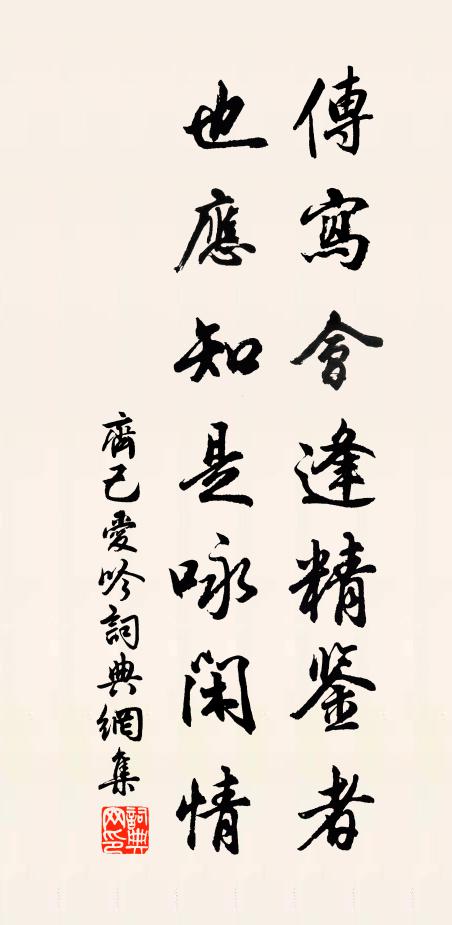 傳寫會逢精鑒者
也應知是咏閑情
齊己愛吟詞典網集
詞典網印